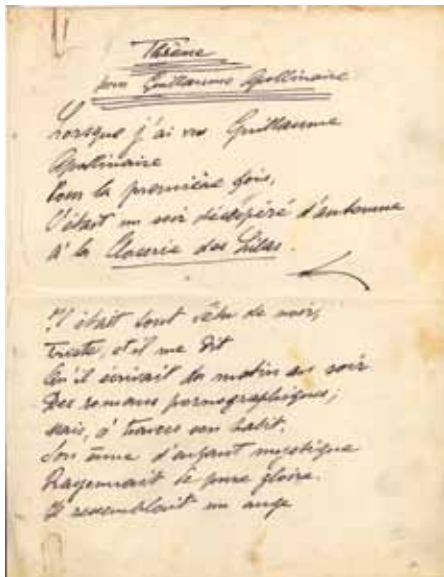 Thrène
pour Guillaume Apollinaire
Lorsque j'ai vu Guillaume
Apollinaire
Pour la première fois,
C'était un soir désespéré d'automne
à la Closerie des Lilas.
Il était tout vêtu de noir,
Triste, et il me dit
Qu'il écrivait du matin au soir
Des romans pornographiques;
Mais, à travers son habit,
Son âme d'enfant mystique
Rayonnait de pure gloire.
Il ressemblait un ange